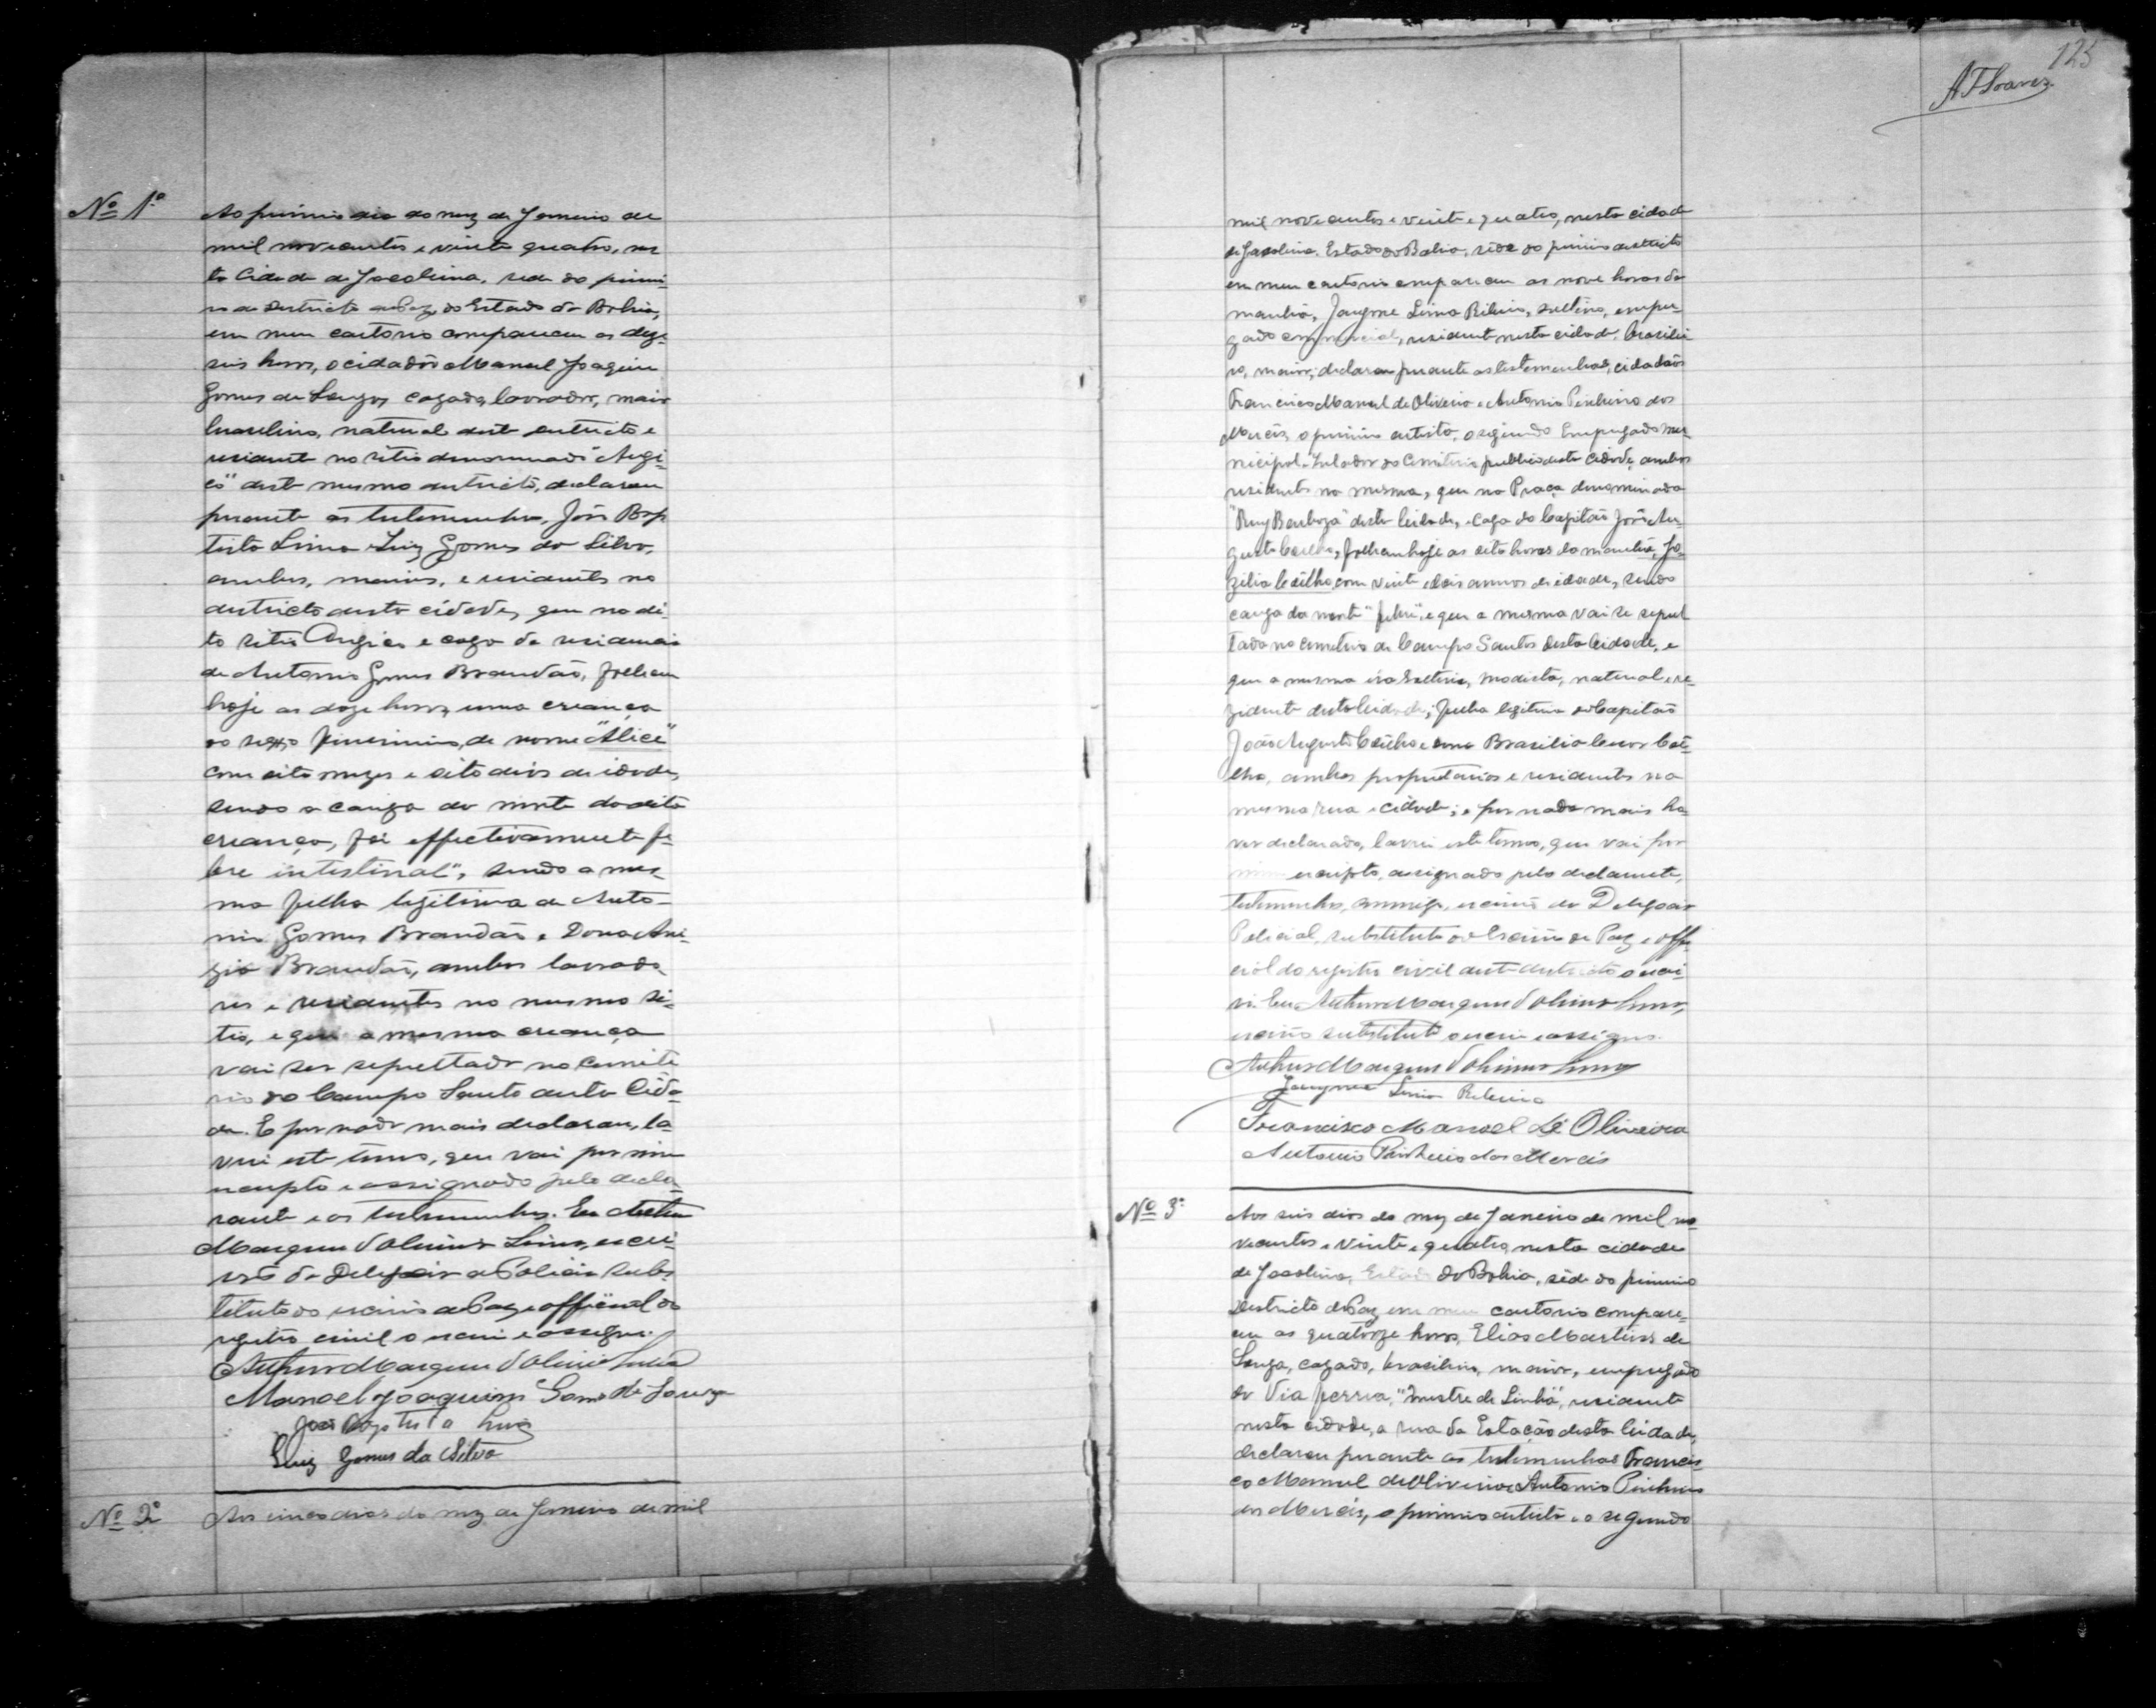 Nº 1º
Ao primeiro dia do mez de Janeiro de
mil novecentos e vinte quatro, nes
ta Cidade de Jacobina, sede do primei
ro districto de Paz, do Estado da Bahia,
em meu cartorio compareceu as deze
seis horas, o cidadão Manuel Joaquim
Gomes de Souza, cazado, lavrador, maior
brasileiro, natural deste districto e
residente no sitio denominado "Angi
co" deste mesmo districto, declarou
perante as testemunhas, João Bap
tista Lima e Luiz Gomes da Silva,
ambos, maiores, e residentes no
districto desta cidade, que no di
to sitio Angico e caza de residencia
de Antonio Gomes Brandão, falleceu
hoje as doze horas, uma creança
do sexo feminino, de nome "Alice"
com oito mezes e oito dias de idade,
sendo a cauza da morte da dita
creança, foi effectivamente "fe
bre intestinal", sendo a mes
ma filha legitima de Anto-
nio Gomes Brandão e Dona
Brandão, ambos lavrado
res e residentes no mesmo si
tio, e que a mesma creança
vai ser sepultada no cemite
rio do Campo Santo desta Cida
de. E por nada mais declarou, la
vrei este termo, que vai por mim
escripto e assignado pelo decla
rante e as testemunhas. Eu Arthur
Marques Lima, escri
vão da Delegacia de Policia subs
tituto do escrivão de Paz e official do
registro civil o escrevi e assigno.
Arthur Marques Lima
Manoel Joaquim Gomes de Souza
João Baptista Lima
Luiz Gomes da Silva
Nº 2º
Aos cinco dias do mez de Janeiro de mil
125
A T Soares
mil novecentos e vinte e quatro, nesta cidade
de Jacobina, Estado da Bahia, séde do primeiro districto
em meu cartorio compareceu as nove horas da
manhã, Jayme Lima Ribeiro, solteiro, empre
gado commercial, residente nesta cidade, brasilei
ro, maior; declarou perante as testemunhas, cidadãos
Francisco Manoel de Oliveira e Antonio Pinheiro das
Mercês, o primeiro artista, o segundo Empregado Mu
nicipal, Zelador do Cemiterio publico desta Cidade, ambos
residentes na mesma, que na Praça denominada
"Ruy Barboza" desta Cidade, e caza do Capitão João Au
gusto Coelho, falleceu hoje as oito horas da manhã, Jo
zilia Coêlho, com vinte e dois annos de idade, sendo
cauza da morte "febre", e que a mesma vai se sepul
tada no cemiterio do Campo Santo desta Cidade, e
que a mesma éra solteira, modista, natural e re
zidente desta Cidade; filha legitima do Capitão
João Augusto Coêlho e Dona Brasilia Coê
lho, ambos proprietarios e residentes na
mesma rua e cidade; e por nada mais ha
ver declarado, lavrei este termo, que vai por
mim escripto, assignado pelo declarante,
testemunhas, commigo, escrivão da Delegacia
Policial, substituto do Escrivão de Paz e offi
cial do registro civil deste districto o escre
vi. Eu Arthur Marques Lima,
escrivão substituto o escrevi e assigno.
Arthur Marques Lima
Jayme Lima Ribeiro
Francisco Manoel de Oliveira
Antonio Pinheiro das Mercês
Nº 3º
Aos seis dias do mez de Janeiro de mil no
vecentos e vinte e quatro, nesta cidade
de Jacobina, Estado da Bahia, séde do primeiro
Districto de Paz em meu cartorio compare
ceu as quatorze horas, Elias Martins de
Souza, cazado, brasileiro, maior, empregado
da Via ferrea, "mestre de Linha", residente
nesta cidade, a rua da Estação desta Cidade,
declarou perante as testemunhas Francis
co Manuel de Oliveira e Antonio Pinheiro
das Mercês, o primeiro artista e o segundo